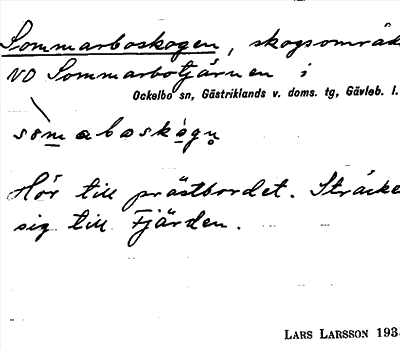 Sommarboskogen, skogsområd
VO Sommarbotjärnen i
Ockelbo sn, Gästriklands v. doms. tg, Gävleb. l.
sòmaboskógn̥
Hör till prästbordet. Sträcke
sig till Fjärden.
LARS LARSSON 193